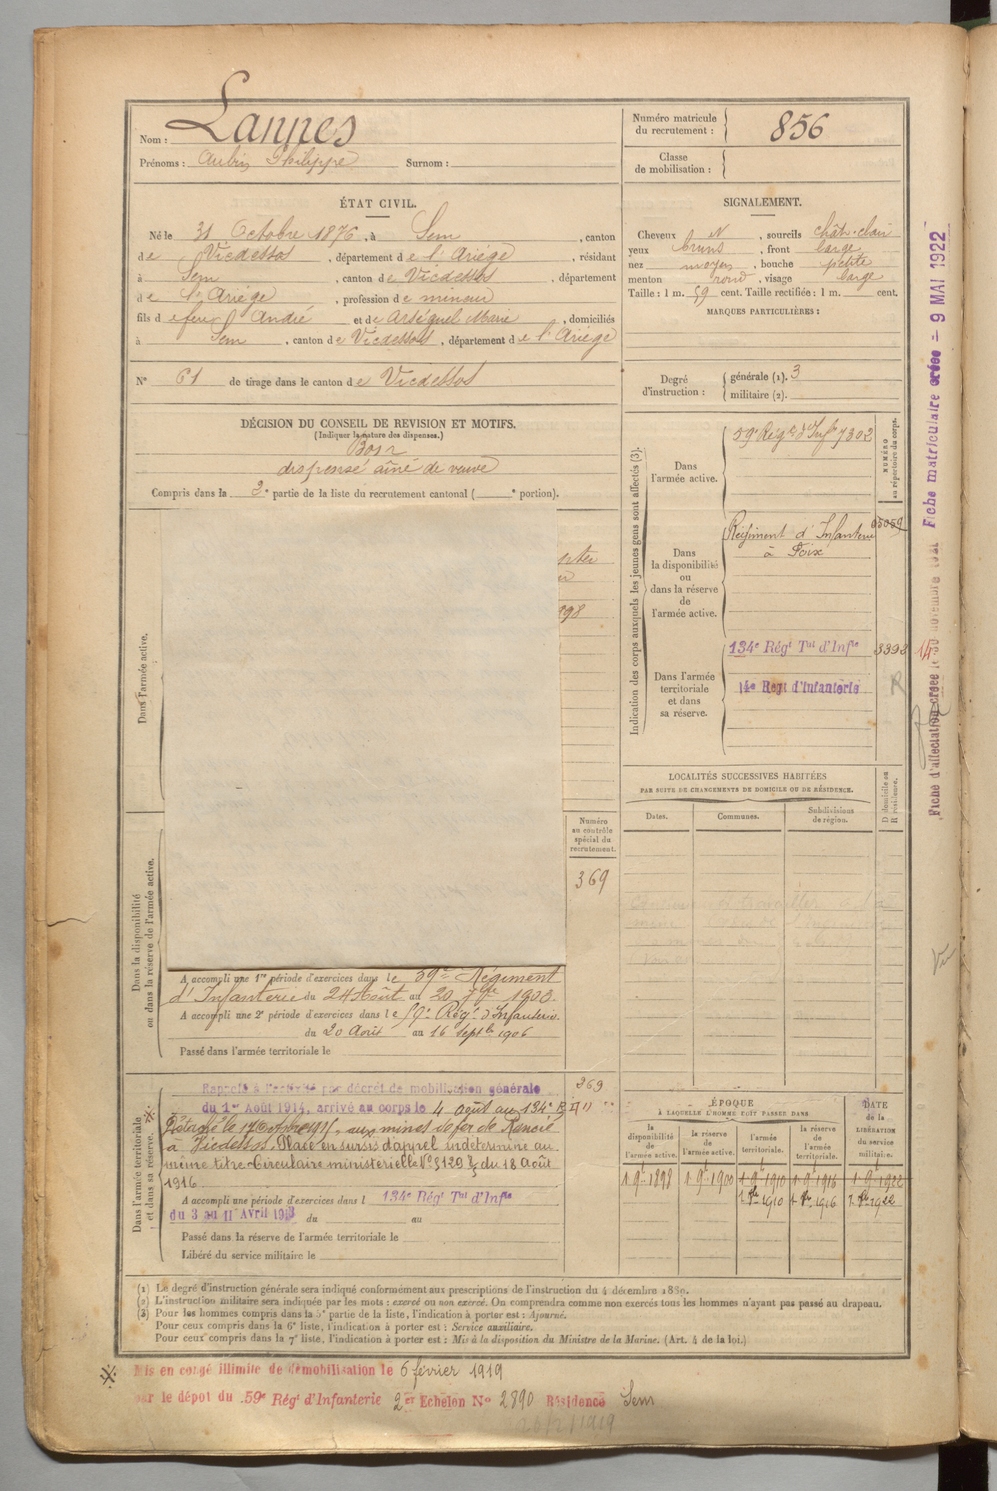 Nom : Lannes
Prénoms : Aubin Philippe Surnom :
Numéro matricule du recrutement : 856
Classe de mobilisation :
ÉTAT CIVIL.
Né le 31 Octobre 1876, à Sem, canton
de Vicdessos, département de l'Ariége, résidant
à Sem, canton de Vicdessos, département
de l'Ariége, profession de mineur
fils de feu André et de Arséguel Marie, domiciliés
à Sem, canton de Vicdessos, département de l'Ariége
N° 61 de tirage dans le canton de Vicdessos
SIGNALEMENT.
Cheveux N, sourcils chât. clair
yeux bruns, front large
nez moyen, bouche petite
menton rond, visage large
Taille : 1 m. 59 cent. Taille rectifiée : 1 m. cent.
MARQUES PARTICULIÈRES :
Degré d'instruction : générale (1). 3
militaire (2).
DÉCISION DU CONSEIL DE REVISION ET MOTIFS.
(Indiquer la nature des dispenses.)
Bon
dispensé aîné de veuve
Compris dans la 2e partie de la liste du recrutement cantonal ( e portion).
Indication des corps auxquels les jeunes gens sont affectés (3).
NUMÉRO au répertoire du corps.
Dans l'armée active.
59e Régt d'Infie 7302
Dans la disponibilité ou dans la réserve de l'armée active.
Régiment d'Infanterie 05059
à Foix
Dans l'armée territoriale et dans sa réserve.
134e Régt Tal d'Infie 3398
14e Regt d'Infanterie R
Dans l'armée active.
898
LOCALITÉS SUCCESSIVES HABITÉES
PAR SUITE DE CHANGEMENTS DE DOMICILE OU DE RÉSIDENCE.
D domicile ou R résidence.
Dates. Communes. Subdivisions de région.
Numéro au contrôle spécial du recrutement.
369
Dans la disponibilité ou dans la réserve de l'armée active.
A accompli une 1re période d'exercices dans le 59e Régiment
d'Infanterie du 24 Août au 20 7bre 1903.
A accompli une 2e période d'exercices dans le 59e Régt d'Infanterie.
du 20 Août au 16 Septbre 1906
Passé dans l'armée territoriale le
Dans l'armée territoriale et dans sa réserve.
Rappelé à l'activité par décret de mobilisation générale 369
du 1er Août 1914, arrivé au corps le 4 août au 134e R I
Détaché le 17 Octobre 1915, aux mines de fer de Rancié
à Vicdessos. Placé en sursis d'appel indéterminé au
même titre Circulaire ministérielle du 18 Août
1916
A accompli une période d'exercices dans l 134e Régt Tal d'Infie
du 3 au 11 Avril 1913 du au
Passé dans la réserve de l'armée territoriale le
Libéré du service militaire le
ÉPOQUE
À LAQUELLE L'HOMME DOIT PASSER DANS
DATE de la LIBÉRATION du service militaire.
la disponibilité de l'armée active. la réserve de l'armée active. l'armée territoriale. la réserve de l'armée territoriale.
1 9bre 1898 1 9bre 1900 1 9bre 1910 1 9bre 1916 1 9bre 1922
1 8bre 1910 1 8bre 1916 1 8bre 1922
(1) Le degré d'instruction générale sera indiqué conformément aux prescriptions de l'instruction du 4 décembre 1889.
(2) L'instruction militaire sera indiquée par les mots : exercé ou non exercé. On comprendra comme non exercés tous les hommes n'ayant pas passé au drapeau.
(3) Pour les hommes compris dans la 5e partie de la liste, l'indication à porter est : Ajourné.
Pour ceux compris dans la 6e liste, l'indication à porter est : Service auxiliaire.
Pour ceux compris dans la 7e liste, l'indication à porter est : Mis à la disposition du Ministre de la Marine. (Art. 4 de la loi.)
Mis en congé illimité de démobilisation le 6 février 1919
par le dépot du 59e Régt d'Infanterie 2er Echelon No 2890 Résidence Sem
20/2/1919
Fiche matriculaire créée - 9 MAI 1922
Fiche d'affectation créée le 30 novembre